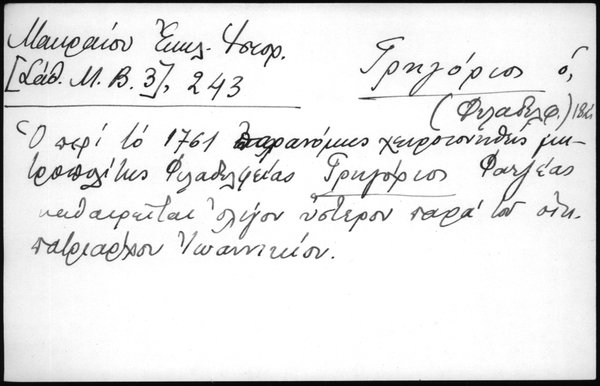 Μακραίου Ἐκκλ. Ἱστορ.
[Σάθ. Μ. Β. 3], 243
Γρηγόριος ὁ,
(Φιλαδελφ.)
Ὁ περί τό 1761 παρανόμως χειροτονηθείς μη-
τροπολίτης Φιλαδελφείας Γρηγόριος
καθαιρεῖται ὀλίγον ὕστερον παρά τοῦ οἰκ.
πατριάρχου Ἰωαννικίου.